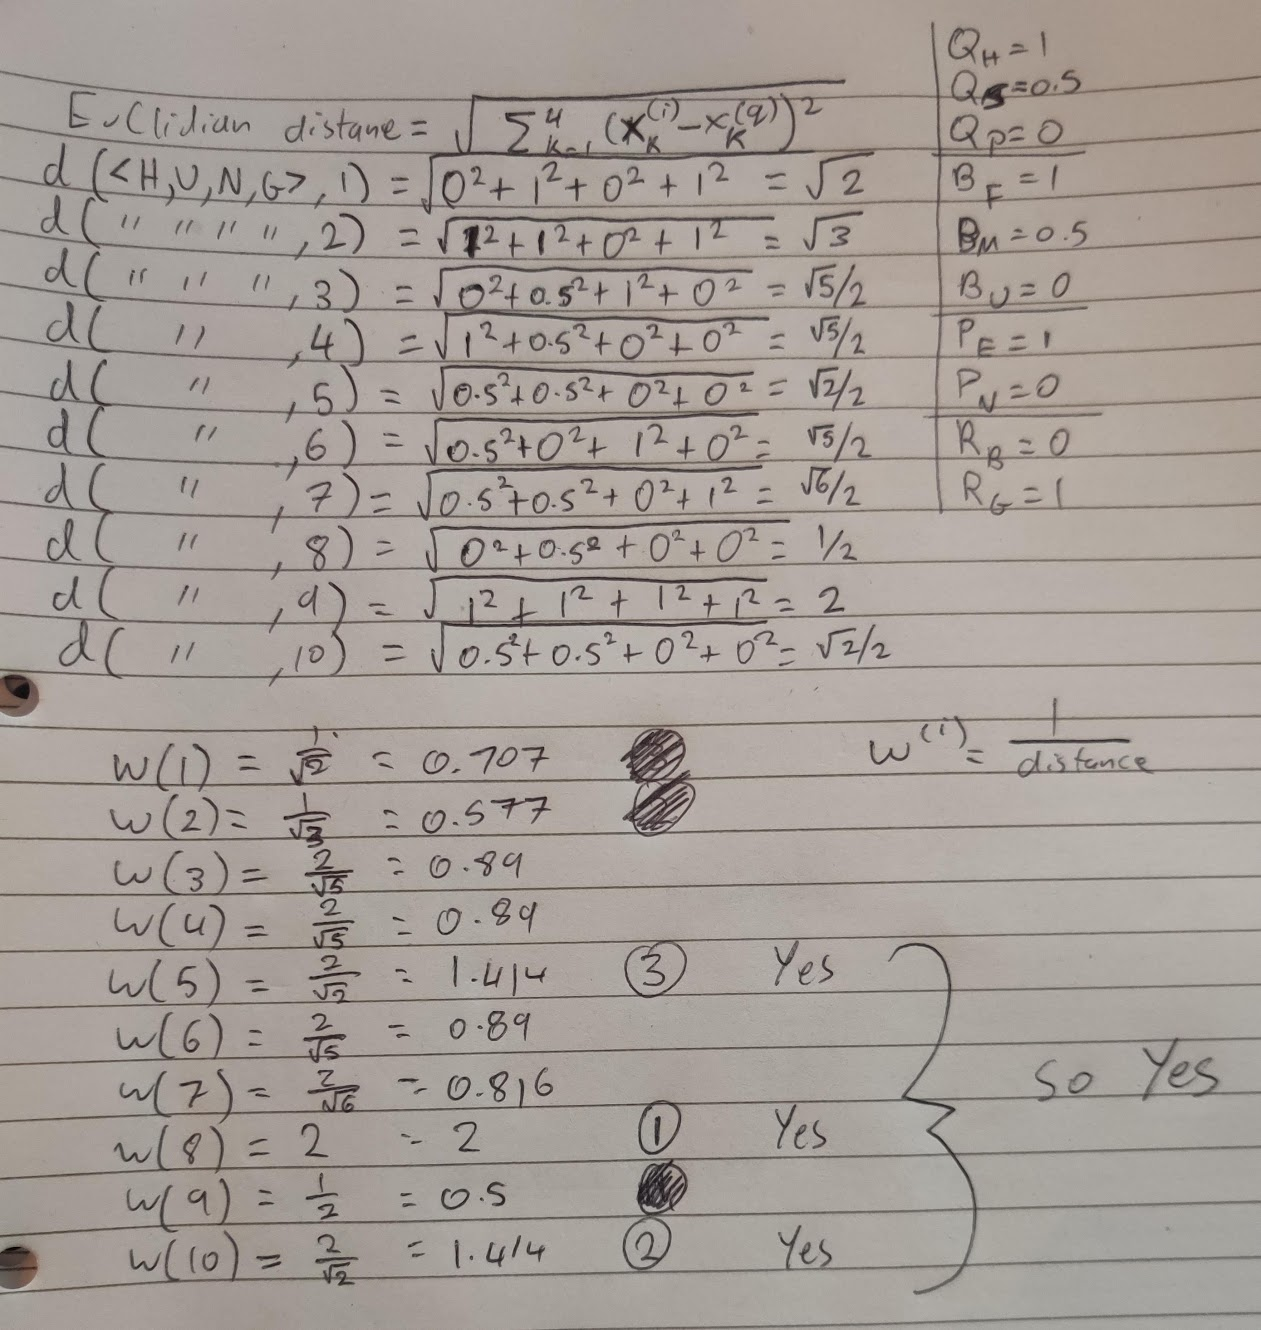 Euclidian distane = √(∑⁴ₖ₌₁ (xₖ⁽ⁱ⁾ − xₖ⁽q⁾)²)
d (<H,U,N,G>, 1) = √(0² + 1² + 0² + 1²) = √2
d( " " " " , 2) = √(1² + 1² + 0² + 1²) = √3
d( " " " , 3) = √(0² + 0.5² + 1² + 0²) = √5/2
d( " , 4) = √(1² + 0.5² + 0² + 0²) = √5/2
d( " , 5) = √(0.5² + 0.5² + 0² + 0²) = √2/2
d( " , 6) = √(0.5² + 0² + 1² + 0²) = √5/2
d( " , 7) = √(0.5² + 0.5² + 0² + 1²) = √6/2
d( " , 8) = √(0² + 0.5² + 0² + 0²) = 1/2
d( " , 9) = √(1² + 1² + 1² + 1²) = 2
d( " , 10) = √(0.5² + 0.5² + 0² + 0²) = √2/2
Q_H = 1
Q_S = 0.5
Q_P = 0
B_F = 1
B_M = 0.5
B_U = 0
P_E = 1
P_N = 0
R_B = 0
R_G = 1
w⁽ⁱ⁾ = 1/distance
w(1) = 1/√2 = 0.707
w(2) = 1/√3 = 0.577
w(3) = 2/√5 = 0.89
w(4) = 2/√5 = 0.89
w(5) = 2/√2 = 1.414 ③ Yes
w(6) = 2/√5 = 0.89
w(7) = 2/√6 = 0.816
w(8) = 2 = 2 ① Yes
w(9) = 1/2 = 0.5
w(10) = 2/√2 = 1.414 ② Yes
so Yes